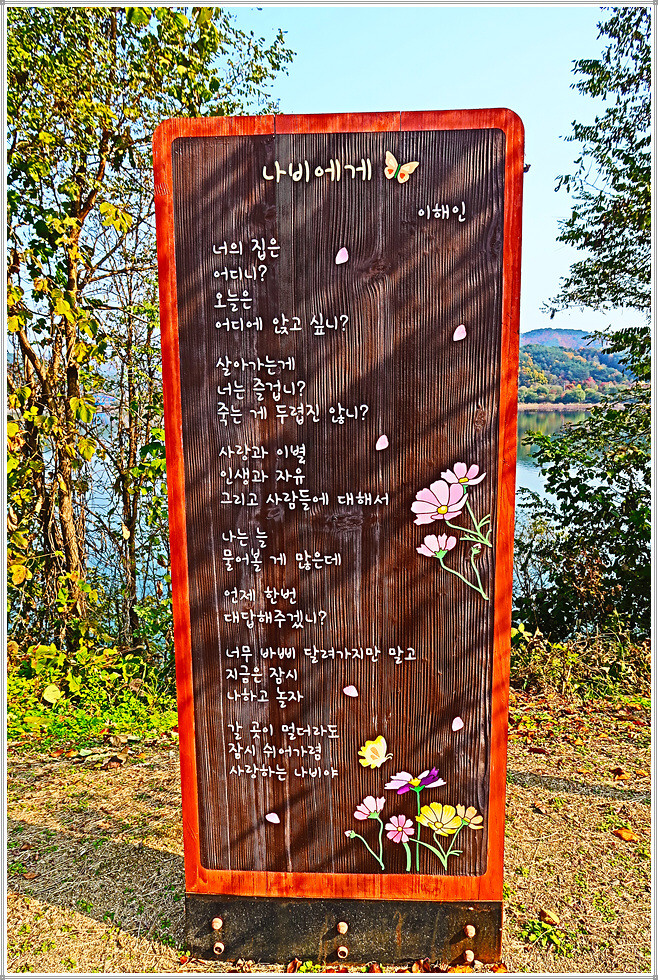 나비에게
이해인
너의 집은
어디니?
오늘은
어디에 앉고 싶니?
살아가는게
너는 즐겁니?
죽는 게 두렵진 않니?
사랑과 이별
인생과 자유
그리고 사람들에 대해서
나는 늘
물어볼 게 많은데
언제 한번
대답해주겠니?
너무 바삐 달려가지만 말고
지금은 잠시
나하고 놀자
갈 곳이 멀더라도
잠시 쉬어가렴
사랑하는 나비야